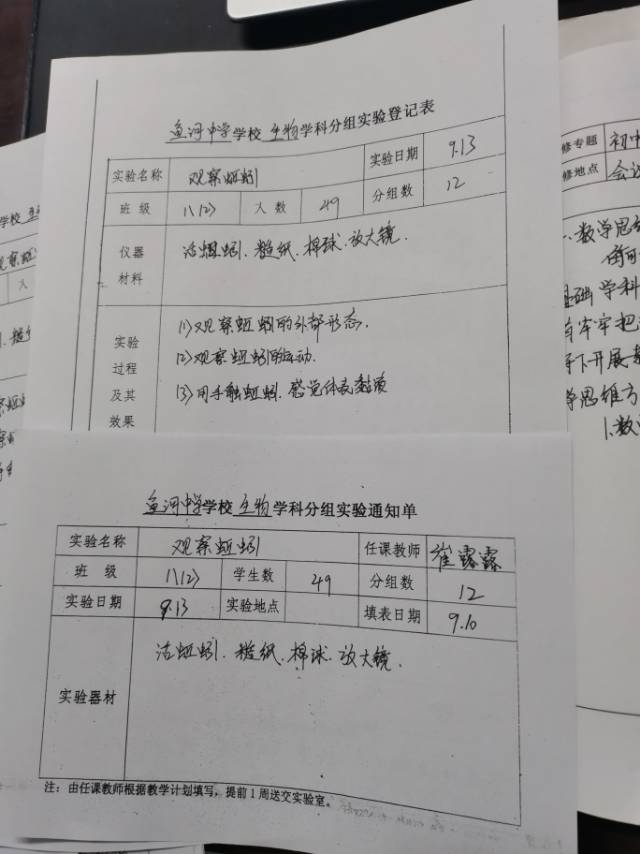 鱼河中学学校 生物学科分组实验登记表
实验名称 观察蚯蚓 实验日期 9.13
班 级 八(2) 人 数 49 分组数 12
仪器
材料
活蚯蚓. 糙纸. 棉球. 放大镜.
实验
过程
及其
效果
(1)观察蚯蚓的外部形态.
(2)观察蚯蚓的运动.
(3)用手触蚯蚓. 感觉体表黏液
鱼河中学学校 生物学科分组实验通知单
实验名称 观察蚯蚓 任课教师 崔露露
班 级 八(2) 学生数 49 分组数 12
实验日期 9.13 实验地点 填表日期 9.10
实验器材 活蚯蚓. 糙纸. 棉球. 放大镜.
注：由任课教师根据教学计划填写，提前1周送交实验室。
修专题 初中
修地点 会议
数学思
基础 学科
牢牢把
下开展
学思维方
1.数